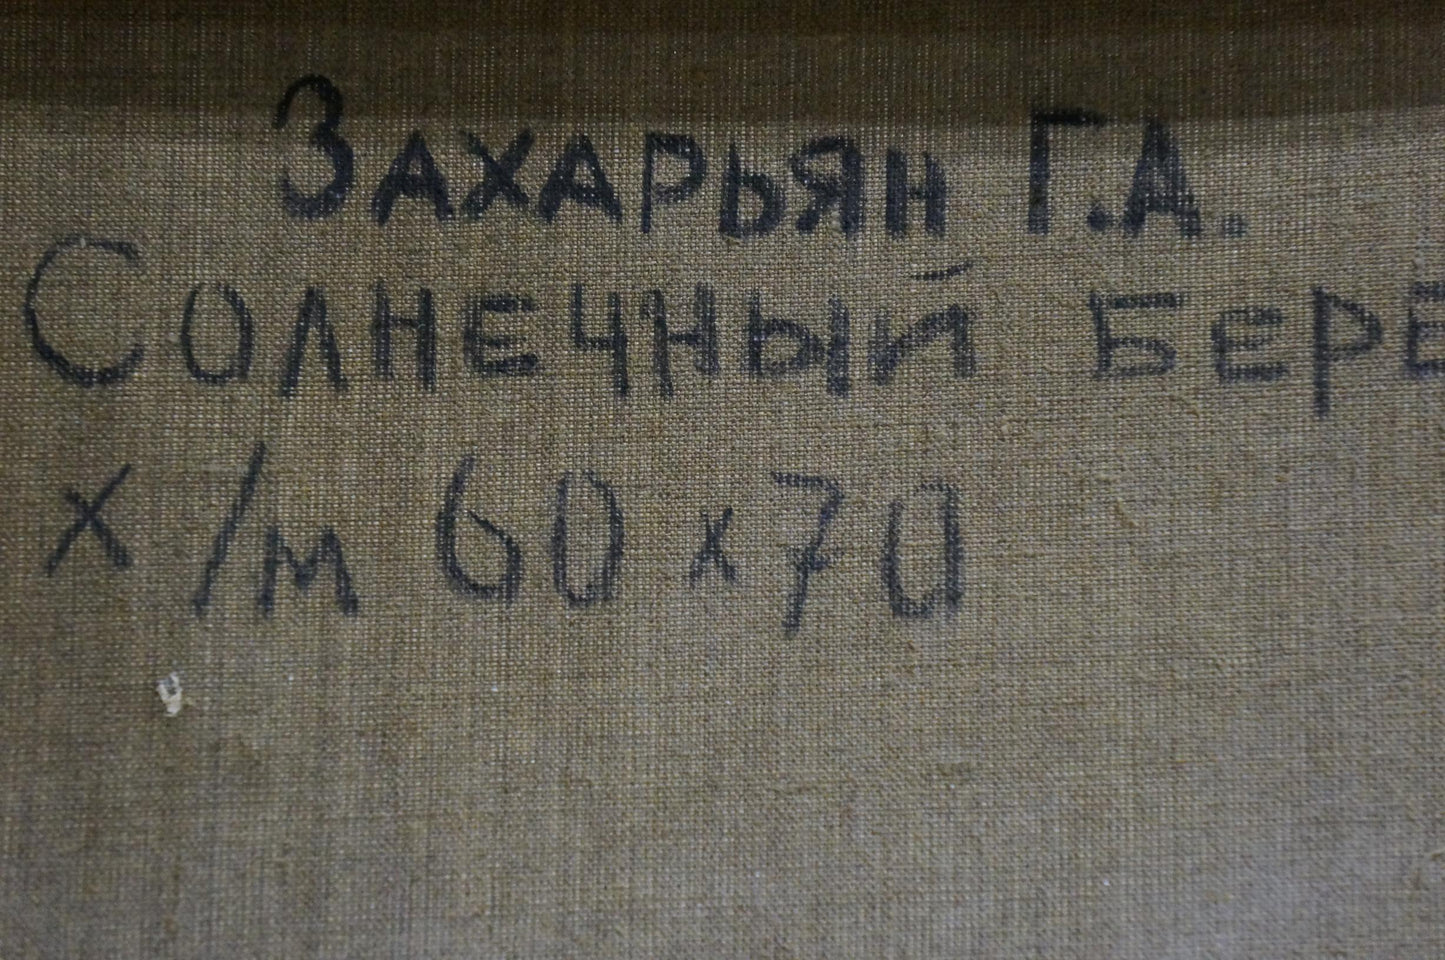 Захарьян Г.А.
Солнечный бере
х/м 60х70